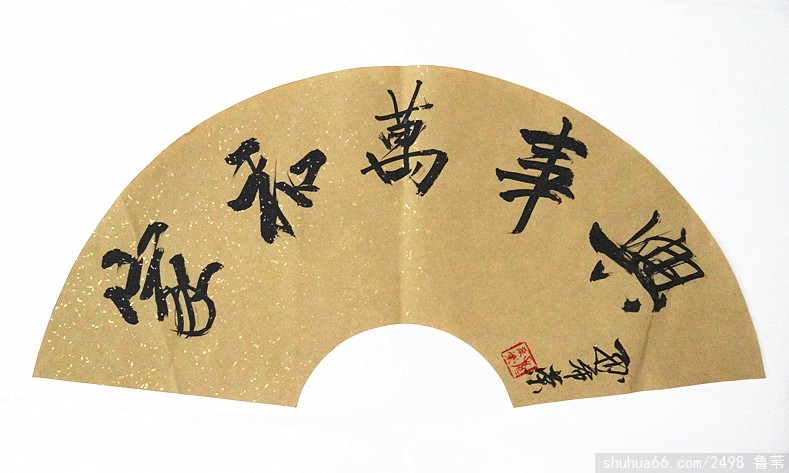 家和萬事興
shuhua66.com/2498 鲁苇